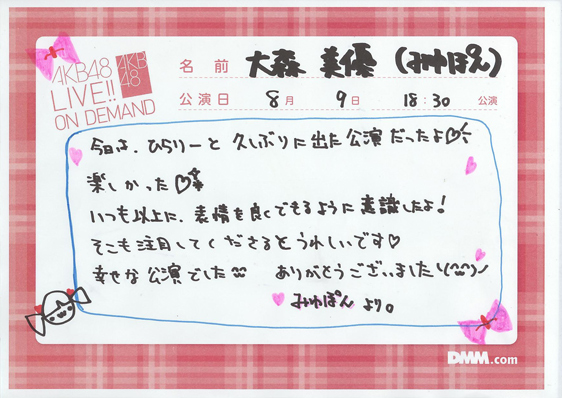 AKB48
LIVE!!
ON DEMAND
AKB
48
名前 大森 美優 (みゆぽん)
公演日 8月 9日 18:30 公演
今日は、ひらりーと 久しぶりに出た公演だったよ♡
楽しかった♡
いつも以上に、表情を良くできるように意識したよ!
そこも注目してくださるとうれしいです♡
幸せな公演でした^^ ありがとうございました\(^^)ノ
みゆぽん より。
DMM.com